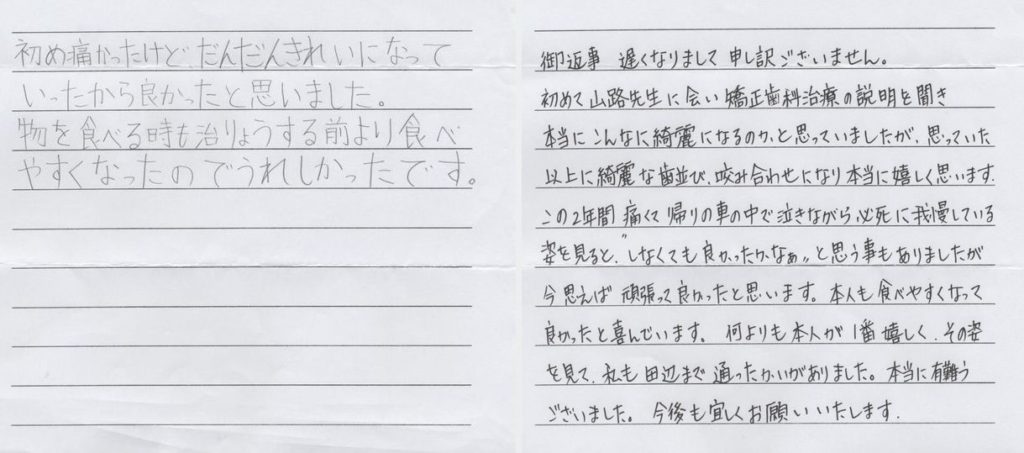 初め痛かったけど、だんだんきれいになって
いったから良かったと思いました。
物を食べる時も治りょうする前より食べ
やすくなったのでうれしかったです。
御返事 遅くなりまして申し訳ございません。
初めて山路先生に会い矯正歯科治療の説明を聞き
本当にこんなに綺麗になるのか、と思っていましたが、思っていた
以上に綺麗な歯並び、咬み合わせになり本当に嬉しく思います。
この2年間痛くて帰りの車の中で泣きながら必死に我慢している
姿を見ると、"しなくても良かったかなぁ"と思う事もありましたが
今思えば頑張って良かったと思います。本人も食べやすくなって
良かったと喜んでいます。何よりも本人が1番嬉しく、その姿
を見て、私も田辺まで通ったかいがありました。本当に有難う
ございました。今後も宜しくお願いいたします。